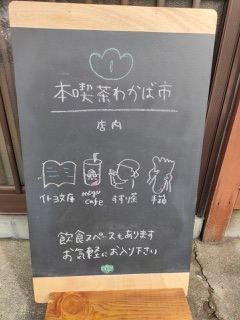 本喫茶わかば市
店内
仆ヨ文庫
mogu
cafe
すす窯
手箱
飲食スペースもあります
お気軽にお入り下さい